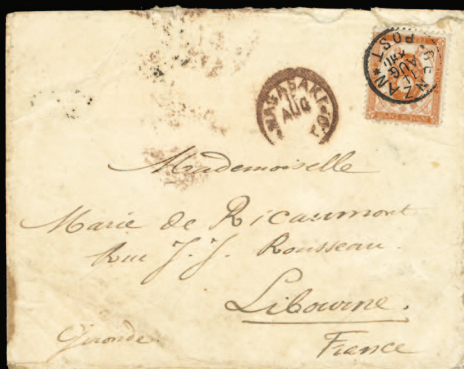 GENZAN
AUG
POST
NAGASAKI
AUG
Mademoiselle
Marie de Ricaumont
Rue J. J. Rousseau.
Libourne.
Gironde
France